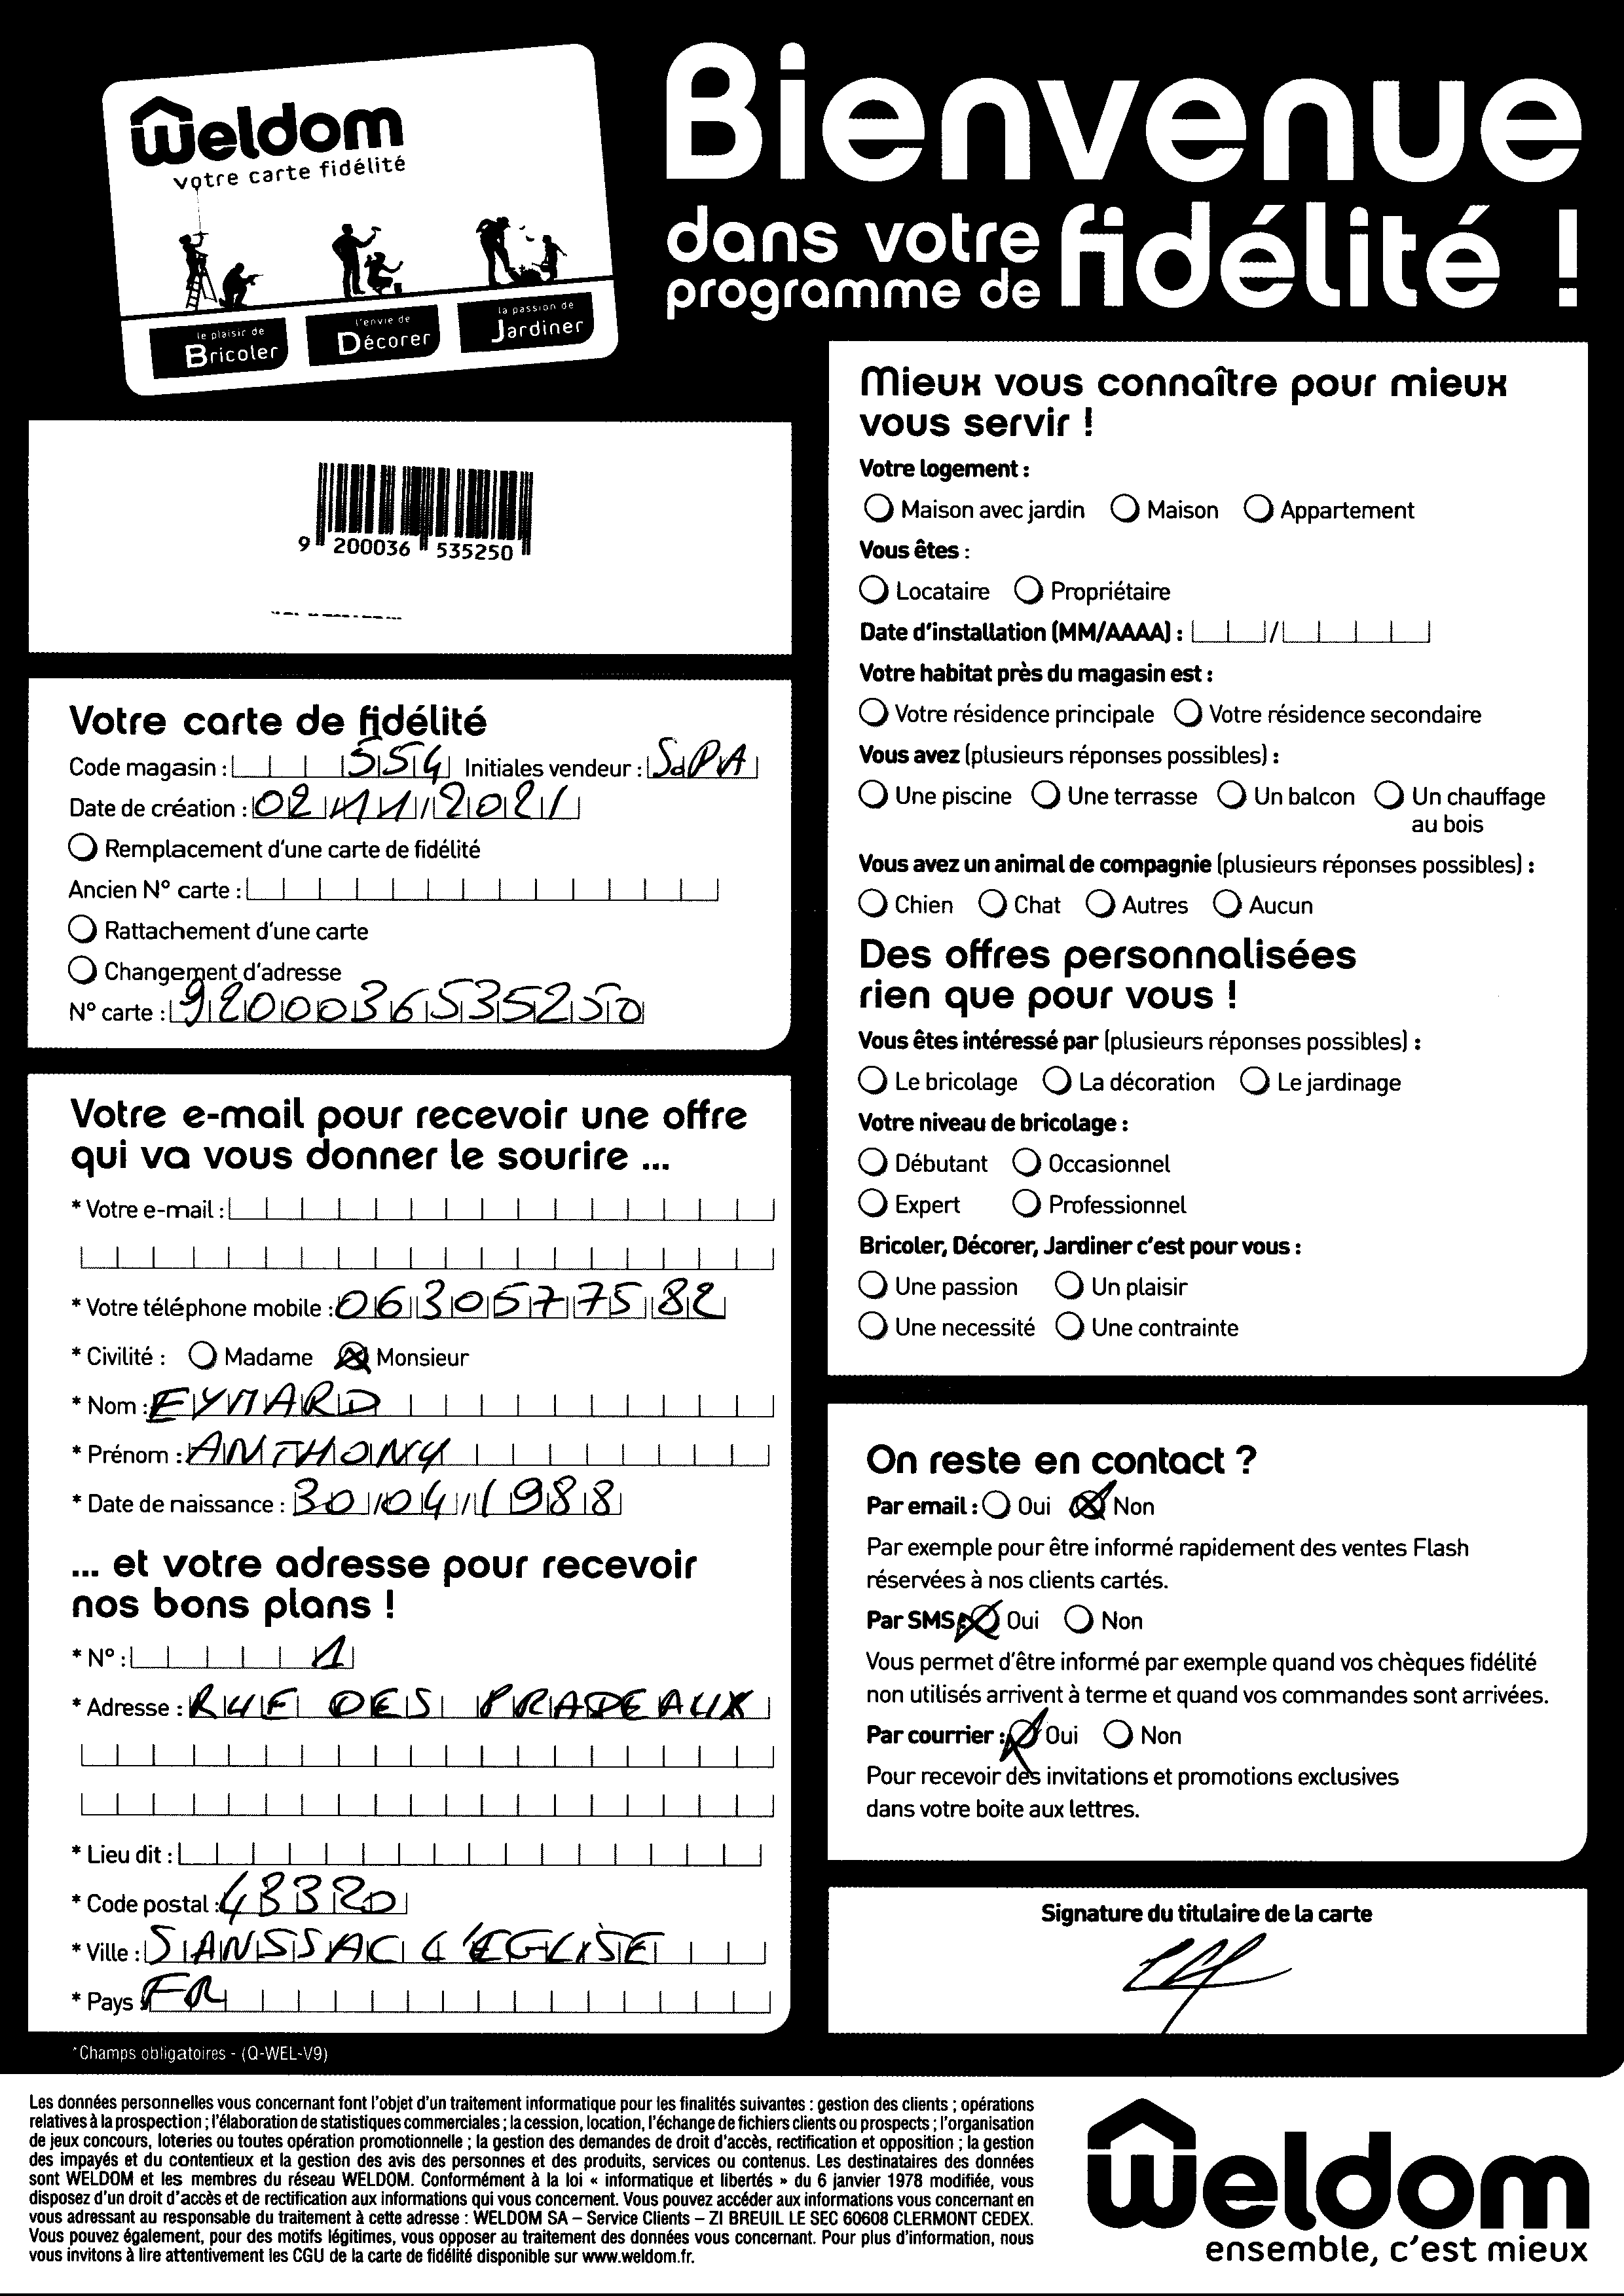 Weldom
votre carte fidélité
le plaisir de
Bricoler
l'envie de
Décorer
la passion de
Jardiner
Bienvenue
dans votre
programme de fidélité !
9 200036 535250
Votre carte de fidélité
Code magasin : 554 Initiales vendeur : SPA
Date de création : 02/11/2021
Remplacement d'une carte de fidélité
Ancien N° carte :
Rattachement d'une carte
Changement d'adresse
N° carte : 9200036535250
Votre e-mail pour recevoir une offre
qui va vous donner le sourire ...
* Votre e-mail :
* Votre téléphone mobile : 0630577582
* Civilité : Madame Monsieur
* Nom : EYMARD
* Prénom : ANTHONY
* Date de naissance : 30/04/1988
... et votre adresse pour recevoir
nos bons plans !
* N° : 1
* Adresse : RUE DES PRADEAUX
* Lieu dit :
* Code postal : 43320
* Ville : SANSSAC L'EGLISE
* Pays FR
*Champs obligatoires - (Q-WEL-V9)
Mieux vous connaître pour mieux
vous servir !
Votre logement :
Maison avec jardin Maison Appartement
Vous êtes :
Locataire Propriétaire
Date d'installation (MM/AAAA) : /
Votre habitat près du magasin est :
Votre résidence principale Votre résidence secondaire
Vous avez (plusieurs réponses possibles) :
Une piscine Une terrasse Un balcon Un chauffage
au bois
Vous avez un animal de compagnie (plusieurs réponses possibles) :
Chien Chat Autres Aucun
Des offres personnalisées
rien que pour vous !
Vous êtes intéressé par (plusieurs réponses possibles) :
Le bricolage La décoration Le jardinage
Votre niveau de bricolage :
Débutant Occasionnel
Expert Professionnel
Bricoler, Décorer, Jardiner c'est pour vous :
Une passion Un plaisir
Une necessité Une contrainte
On reste en contact ?
Par email : Oui Non
Par exemple pour être informé rapidement des ventes Flash
réservées à nos clients cartés.
Par SMS : Oui Non
Vous permet d'être informé par exemple quand vos chèques fidélité
non utilisés arrivent à terme et quand vos commandes sont arrivées.
Par courrier : Oui Non
Pour recevoir des invitations et promotions exclusives
dans votre boite aux lettres.
Signature du titulaire de la carte
Les données personnelles vous concernant font l'objet d'un traitement informatique pour les finalités suivantes : gestion des clients ; opérations
relatives à la prospection ; l'élaboration de statistiques commerciales ; la cession, location, l'échange de fichiers clients ou prospects ; l'organisation
de jeux concours, loteries ou toutes opération promotionnelle ; la gestion des demandes de droit d'accès, rectification et opposition ; la gestion
des impayés et du contentieux et la gestion des avis des personnes et des produits, services ou contenus. Les destinataires des données
sont WELDOM et les membres du réseau WELDOM. Conformément à la loi « informatique et libertés » du 6 janvier 1978 modifiée, vous
disposez d'un droit d'accès et de rectification aux informations qui vous concernent. Vous pouvez accéder aux informations vous concernant en
vous adressant au responsable du traitement à cette adresse : WELDOM SA – Service Clients – ZI BREUIL LE SEC 60608 CLERMONT CEDEX.
Vous pouvez également, pour des motifs légitimes, vous opposer au traitement des données vous concernant. Pour plus d'information, nous
vous invitons à lire attentivement les CGU de la carte de fidélité disponible sur www.weldom.fr.
Weldom
ensemble, c'est mieux